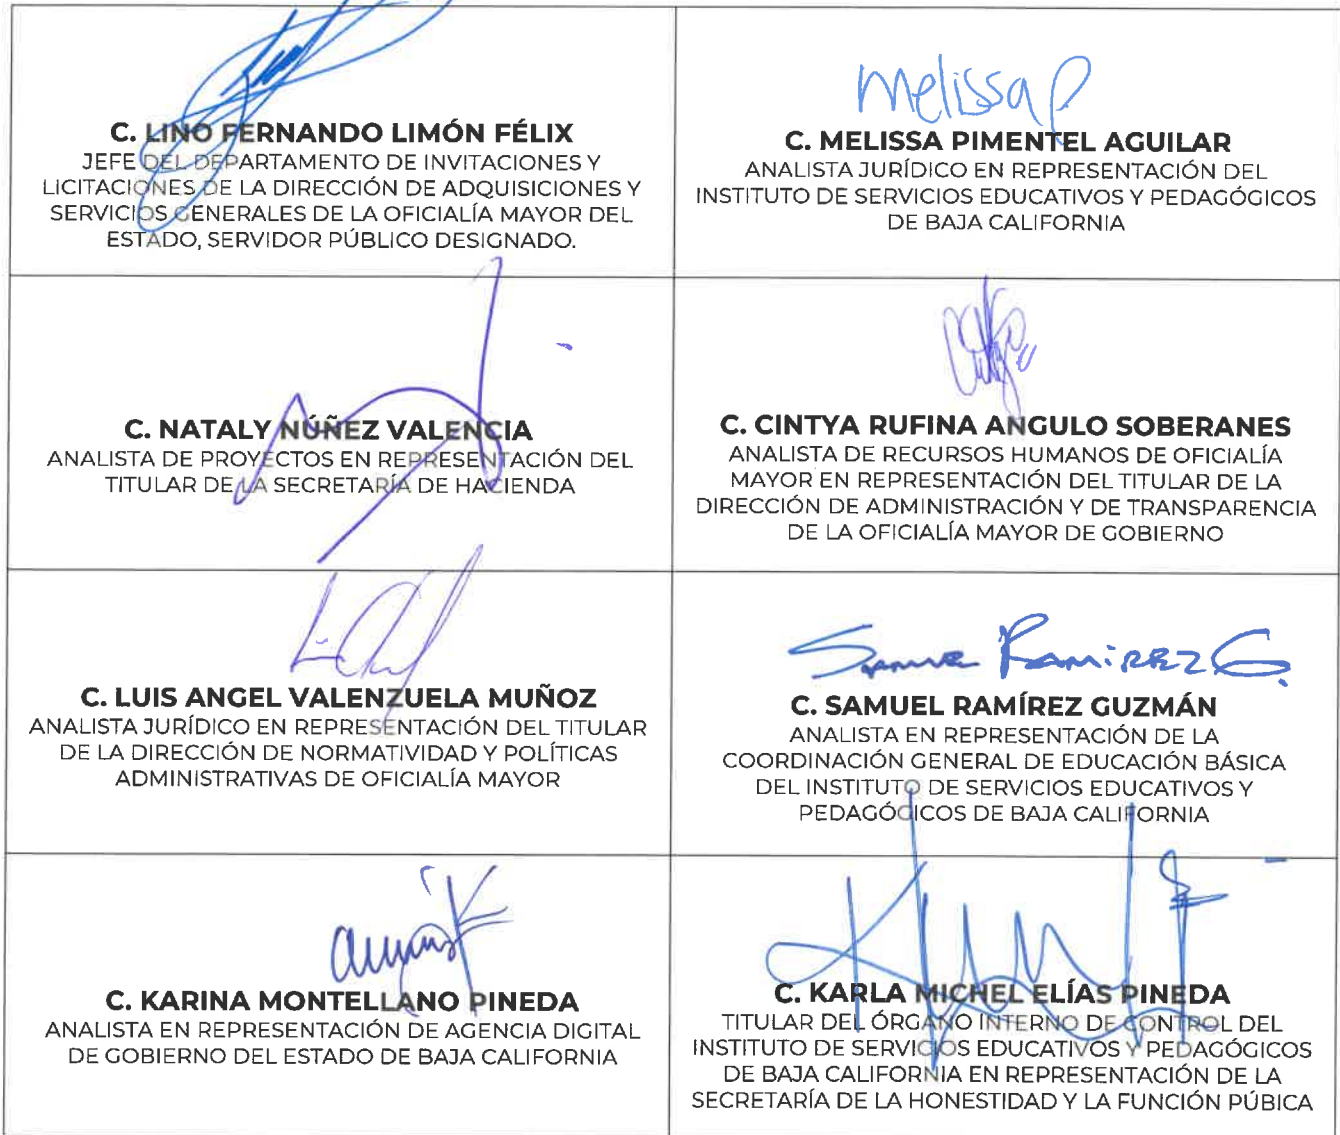 C. LINO FERNANDO LIMÓN FÉLIX
JEFE DEL DEPARTAMENTO DE INVITACIONES Y
LICITACIONES DE LA DIRECCIÓN DE ADQUISICIONES Y
SERVICIOS GENERALES DE LA OFICIALÍA MAYOR DEL
ESTADO, SERVIDOR PÚBLICO DESIGNADO.
Melissa P
C. MELISSA PIMENTEL AGUILAR
ANALISTA JURÍDICO EN REPRESENTACIÓN DEL
INSTITUTO DE SERVICIOS EDUCATIVOS Y PEDAGÓGICOS
DE BAJA CALIFORNIA
C. NATALY NÚÑEZ VALENCIA
ANALISTA DE PROYECTOS EN REPRESENTACIÓN DEL
TITULAR DE LA SECRETARÍA DE HACIENDA
C. CINTYA RUFINA ANGULO SOBERANES
ANALISTA DE RECURSOS HUMANOS DE OFICIALÍA
MAYOR EN REPRESENTACIÓN DEL TITULAR DE LA
DIRECCIÓN DE ADMINISTRACIÓN Y DE TRANSPARENCIA
DE LA OFICIALÍA MAYOR DE GOBIERNO
C. LUIS ANGEL VALENZUELA MUÑOZ
ANALISTA JURÍDICO EN REPRESENTACIÓN DEL TITULAR
DE LA DIRECCIÓN DE NORMATIVIDAD Y POLÍTICAS
ADMINISTRATIVAS DE OFICIALÍA MAYOR
Samuel Ramirez G.
C. SAMUEL RAMÍREZ GUZMÁN
ANALISTA EN REPRESENTACIÓN DE LA
COORDINACIÓN GENERAL DE EDUCACIÓN BÁSICA
DEL INSTITUTO DE SERVICIOS EDUCATIVOS Y
PEDAGÓGICOS DE BAJA CALIFORNIA
C. KARINA MONTELLANO PINEDA
ANALISTA EN REPRESENTACIÓN DE AGENCIA DIGITAL
DE GOBIERNO DEL ESTADO DE BAJA CALIFORNIA
C. KARLA MICHEL ELÍAS PINEDA
TITULAR DEL ÓRGANO INTERNO DE CONTROL DEL
INSTITUTO DE SERVICIOS EDUCATIVOS Y PEDAGÓGICOS
DE BAJA CALIFORNIA EN REPRESENTACIÓN DE LA
SECRETARÍA DE LA HONESTIDAD Y LA FUNCIÓN PÚBICA